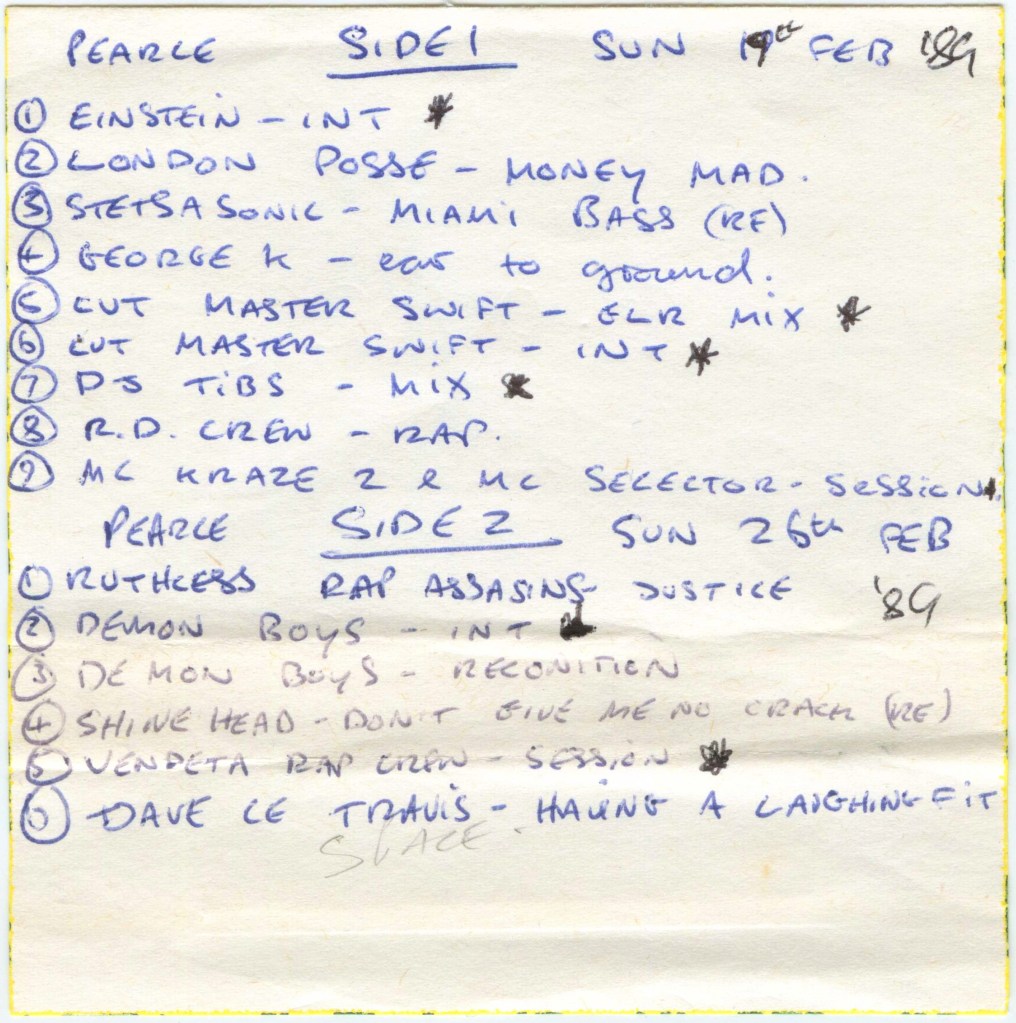 PEARCE SIDE 1 SUN 19th FEB '89
① EINSTEIN - INT *
② LONDON POSSE - MONEY MAD.
③ STETSASONIC - MIAMI BASS (RE)
④ GEORGE K - ear to ground.
⑤ CUT MASTER SWIFT - ELR MIX *
⑥ CUT MASTER SWIFT - INT *
⑦ DJ TIBS - MIX *
⑧ R.D. CREW - RAP.
⑨ MC KRAZE 2 & MC SELECTOR - SESSION *
PEARCE SIDE 2 SUN 26th FEB
① RUTHLESS RAP ASSASINS - JUSTICE '89
② DEMON BOYS - INT *
③ DEMON BOYS - RECONITION
④ SHINE HEAD - DON'T GIVE ME NO CRACK (RE)
⑤ VENDETA RAP CREW - SESSION *
⑥ DAVE LE TRAVIS - HAVING A LAUGHING FIT
SPACE.